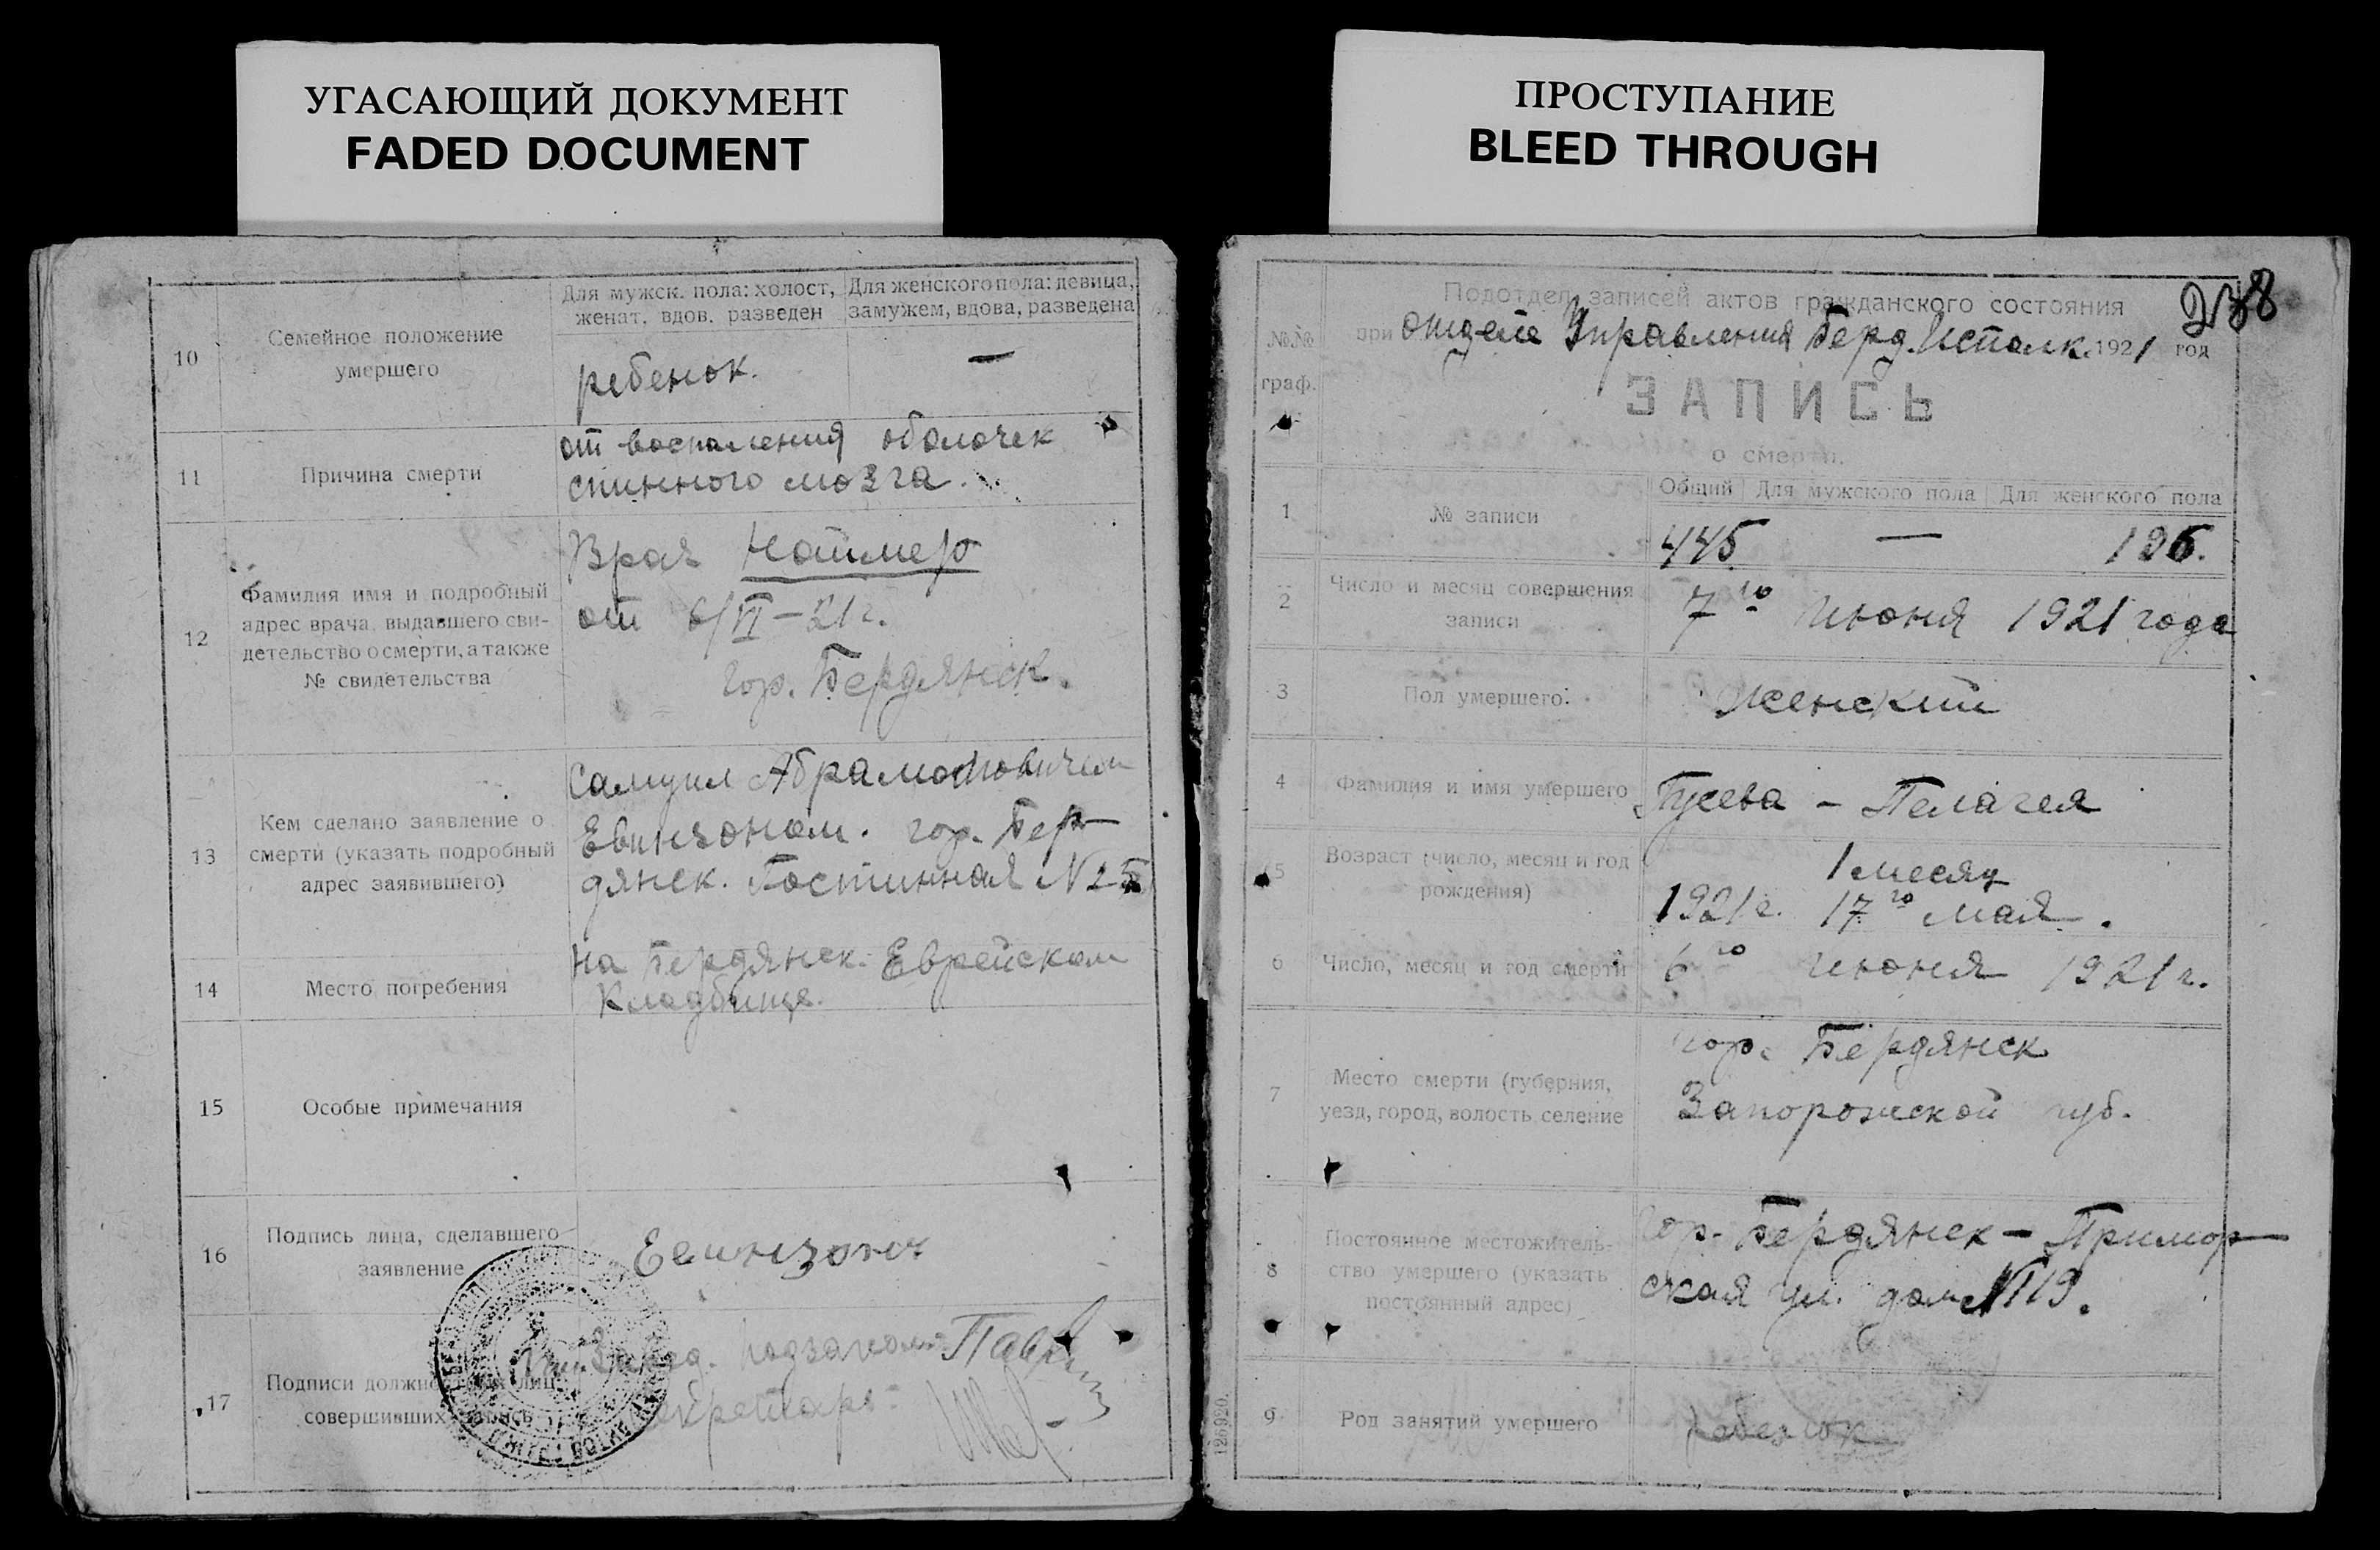 УГАСАЮЩИЙ ДОКУМЕНТ
FADED DOCUMENT
10
Семейное положение
умершего
Для мужск. пола: холост,
женат, вдов, разведен
Для женского пола: девица,
замужем, вдова, разведена
ребенок.
—
11
Причина смерти
от воспаления оболочек
спинного мозга.
12
Фамилия имя и подробный
адрес врача, выдавшего сви-
детельство о смерти, а также
№ свидетельства
Врач
от 6/VI – 21 г.
гор. Бердянск.
13
Кем сделано заявление о
смерти (указать подробный
адрес заявившего)
Самуил
гор. Бер-
дянск. Гостинная № 25
14
Место погребения
на Бердянск. Еврейском
кладбище.
15
Особые примечания
16
Подпись лица, сделавшего
заявление
17
Подписи должностных лиц,
совершивших запись
Секретарь
ПРОСТУПАНИЕ
BLEED THROUGH
238
№№
граф.
Подотдел записей актов гражданского состояния
при отделе Управления Берд. Исполк. 1921 год
ЗАПИСЬ
о смерти.
1
№ записи
Общий
Для мужского пола
Для женского пола
445
—
196.
2
Число и месяц совершения
записи
7го июня 1921 года
3
Пол умершего
Женский
4
Фамилия и имя умершего
Гусева – Пелагея
5
Возраст (число, месяц и год
рождения)
1 месяц
1921 г. 17го мая.
6
Число, месяц и год смерти
6го июня 1921 г.
7
Место смерти (губерния,
уезд, город, волость селение
гор. Бердянск
Запорожской губ.
8
Постоянное местожитель-
ство умершего (указать
постоянный адрес)
гор. Бердянск – Примор-
ская ул. дом № 19.
9
Род занятий умершего
ребенок
126920.